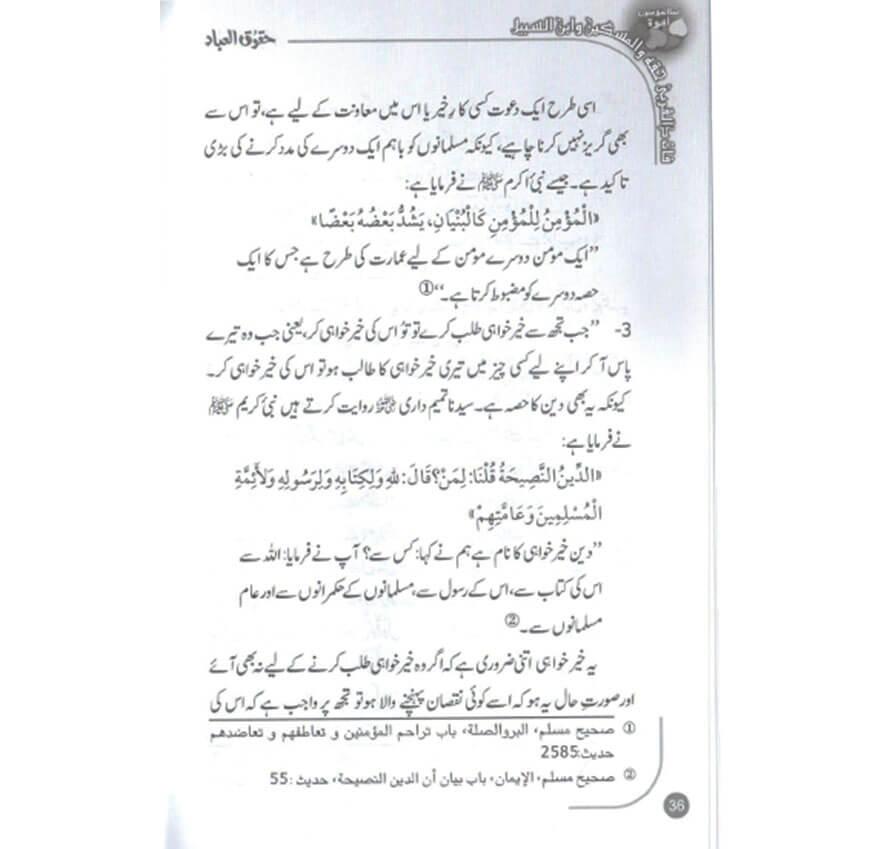 حقوق العباد
انما المومنون اخوة
فاٰت ذا القربىٰ حقه والمسكين وابن السبيل
اسی طرح ایک دعوت کسی کارِ خیر یا اس میں معاونت کے لیے ہے، تو اس سے
بھی گریز نہیں کرنا چاہیے، کیونکہ مسلمانوں کو باہم ایک دوسرے کی مدد کرنے کی بڑی
تاکید ہے۔ جیسے نبیٔ اکرم ﷺ نے فرمایا ہے:
«الْمُؤْمِنُ لِلْمُؤْمِنِ كَالْبُنْيَانِ، يَشُدُّ بَعْضُهُ بَعْضًا»
’’ایک مومن دوسرے مومن کے لیے عمارت کی طرح ہے جس کا ایک
حصہ دوسرے کو مضبوط کرتا ہے۔‘‘①
3- ’’جب تجھ سے خیر خواہی طلب کرے تو تُو اس کی خیر خواہی کر، یعنی جب وہ تیرے
پاس آ کر اپنے لیے کسی چیز میں تیری خیر خواہی کا طالب ہو تو اس کی خیر خواہی کر۔
کیونکہ یہ بھی دین کا حصہ ہے۔ سیدنا تمیم داری رضی اللہ عنہ روایت کرتے ہیں نبیٔ کریم ﷺ
نے فرمایا ہے:
«الدِّينُ النَّصِيحَةُ قُلْنَا: لِمَنْ؟ قَالَ: لِلّٰهِ وَلِكِتَابِهِ وَلِرَسُولِهِ وَلِأَئِمَّةِ
الْمُسْلِمِينَ وَعَامَّتِهِمْ»
’’دین خیر خواہی کا نام ہے ہم نے کہا: کس سے؟ آپ نے فرمایا: اللہ سے
اس کی کتاب سے، اس کے رسول سے، مسلمانوں کے حکمرانوں سے اور عام
مسلمانوں سے۔②
یہ خیر خواہی اتنی ضروری ہے کہ اگر وہ خیر خواہی طلب کرنے کے لیے نہ بھی آئے
اور صورتِ حال یہ ہو کہ اسے کوئی نقصان پہنچنے والا ہو تو تجھ پر واجب ہے کہ اس کی
① صحیح مسلم، البروالصلة، باب تراحم المؤمنین و تعاطفهم و تعاضدهم
حدیث:2585
② صحیح مسلم، الإیمان، باب بیان أن الدین النصیحة، حدیث :55
36